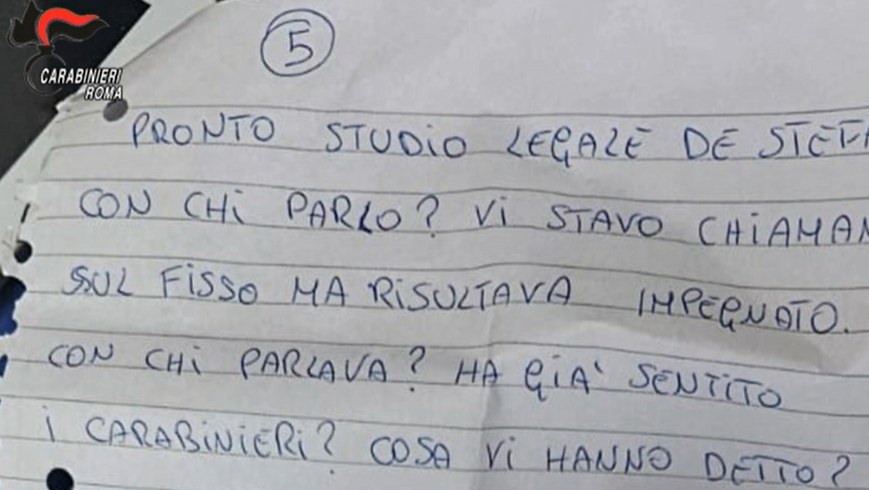 CARABINIERI
ROMA
5
PRONTO STUDIO LEGALE DE STEFA
CON CHI PARLO? VI STAVO CHIAMAN
SUL FISSO MA RISULTAVA IMPEGNATO.
CON CHI PARLAVA? HA GIA' SENTITO
I CARABINIERI? COSA VI HANNO DETTO?